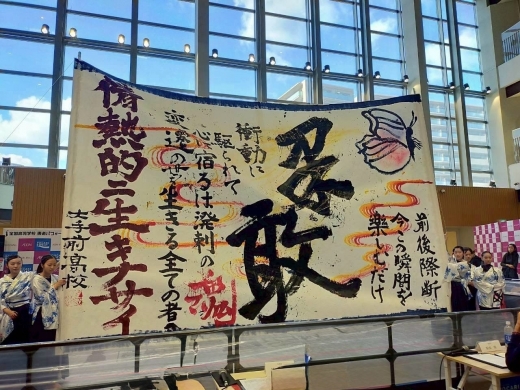 前後際断
今この瞬間を
楽しむだけ
敢
衝動に
駆られて
心に宿るは溌剌の魂
変遷の世を生きる全ての者へ
情熱的ニ生キナサイ
太宰府高校